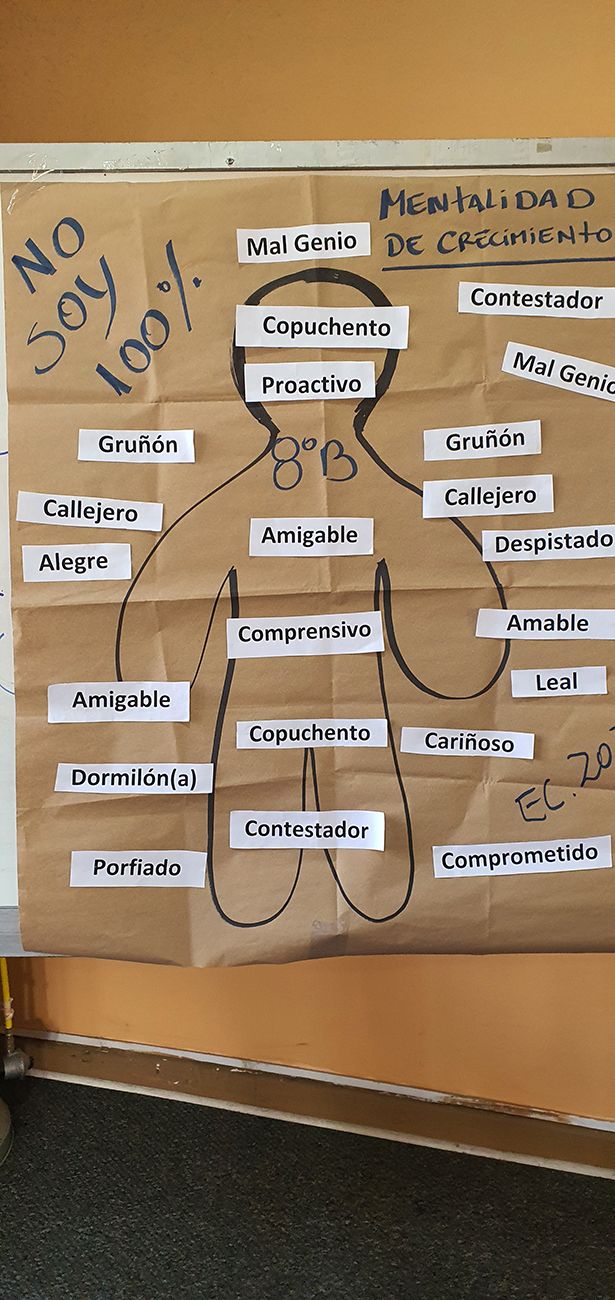 NO
SOY
100%
MENTALIDAD
DE CRECIMIENTO
Mal Genio
Contestador
Copuchento
Mal Genio
Proactivo
Gruñón
Gruñón
8°B
Callejero
Callejero
Amigable
Despistado
Alegre
Comprensivo
Amable
Leal
Amigable
Copuchento
Cariñoso
Dormilón(a)
EC. 20
Contestador
Comprometido
Porfiado